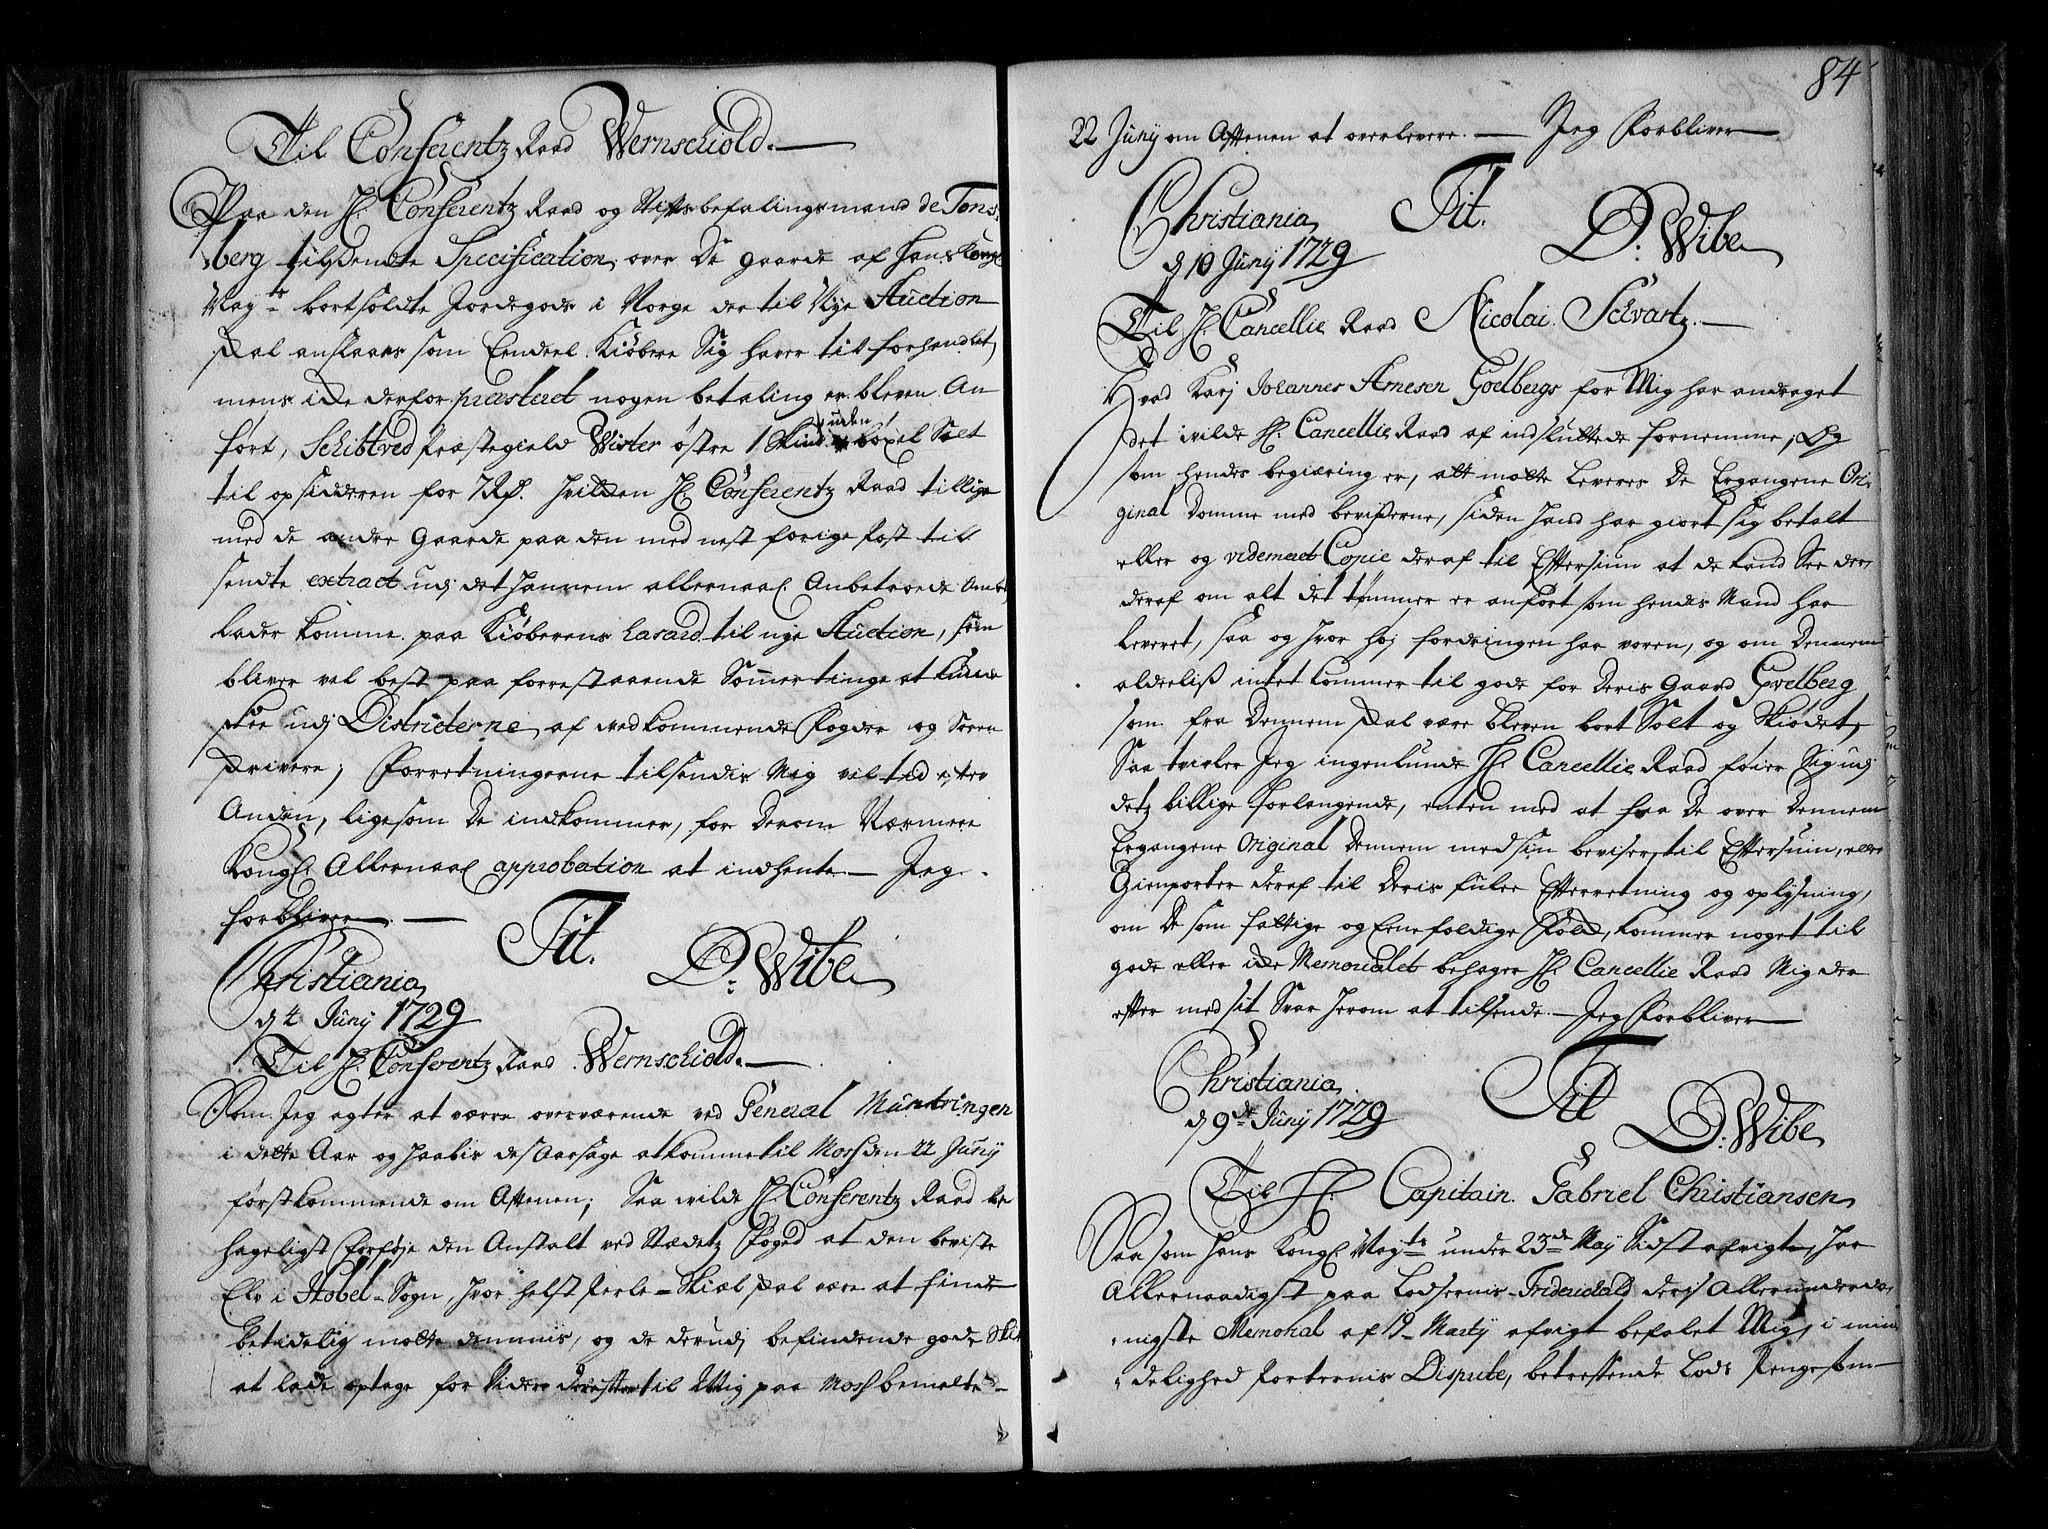 Til Conferentz Raad Wernschiold.
Paa den H. Conferentz Raad og Stiftsbefalingsmand de Tons-
berg tilsendte Specification, over De gaarde af Hans Kongl
May.ts bortsoldte Jordegods i Norge der til Nye Auction
skal anslaaes som Eendeel Kiøbere Sig haver tilforhandlet,
mens icke derfor præsteret nogen betaling er bleven An-
ført, Schibtved Præstegield Wister østre 1 Skind uden boxel Solt
til opsidderen for 7 Rd. hvilcken H. Conferentz Raad tillige
med de andre Gaarde paa den med nest forige Post til
sendte extract udj det hannem allernaad. Anbetroede Ambt
lader komme paa Kiøberens hasard til nye Auction, som
bliver vel best paa forrestaaende Sommertinge at kunde
skee udj Districterne, af vedkommende Fogder og Soren
skrivere; Forretningerne tilsendis Mig vil tid efter
Anden, ligesom De indkommer, for Derom Nærmere
Kongl. Allernaad approbation at indhente. Jeg
forbliver
Tit.
D. Wibe
Christiania
d 4 Juny 1729
Til H. Conferentz Raad Wernschiold.
Som Jeg agter at være overværende ved General Mûnstringen
i dette Aar og haabis des Aarsage at komme til Moss den 22 Juny
førstkommende om Aftenen; Saa wilde H. Conferentz Raad be
hageligst forføje den Anstalt ved Stædetz Foged at den beviste
Elv i Hobel-Sogn, hvor helst Perle-Skiæl skal være at finde
betidelig motte demmis, og de derudj befindende gode Skiæl
at lade optage for Videre derefter til Mig paa Moss bemelte
84
22 Juny om Aftenen at overlevere. Jeg Forbliver
Tit.
D. Wibe
Christiania
d 10 Juny 1729
Til H. Cancellie Raad Nicolai Schvartz.
Hvad Karj Johannes Arnesen Goelbergs for Mig har andraget
det wilde H. Cancellie Raad af indsluttede fornemme, Og
som hendes begiæring er, att motte Leveres De Ergangene Ori-
ginal Domme med beviserne, siden hand har giort sig betalt
eller og videmeret Copie deraf til Eftersiun at de kand See der,
deraf om alt det tømmer er anført som hendes Mand har
leveret, saa og hvor høj fordringen har voren, og om Dennem
alderliss intet kommer til gode for Deris Gaard Goelberg
som fra Dennem skal være bleven bort Solt og Skiødet,
Saa tvivler Jeg ingenlunde H. Cancellie Raad føier Sig udj
detz billige forlangende, enten med at faa De over Dennem
Ergangene Original Dennem med sin beviser, til Eftersuin, eller
Gienparter deraf til Deris fulee Efterretning og oplysning,
om De som fattige og Eenefoldige Folck, kommer noget til
gode eller icke Memorialet behager H. Cancellie Raad Mig der
efter med sit Svar herom at tilsende. Jeg Forbliver
Tit
D. Wibe
Christiania
d 9de Juny 1729
Til H. Capitain Gabriel Christiansen
Saa som Hans Kongl. May.ts under 23de May Sidst afvigte, har
Allernaadigst paa Lodsernis Friderichald deris Allerunderda-
nigste Memorial af 19 Marty afvigt befalet Mig, i min
delighed Parternis Dispute, betreffende Lods Pengestm